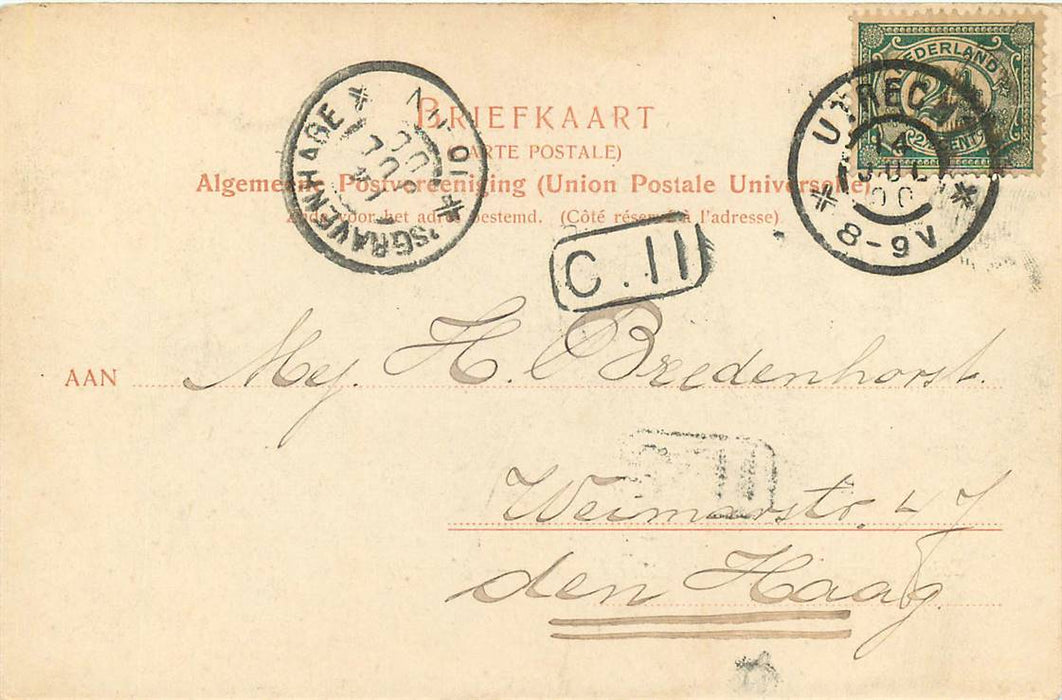 NEDERLAND
2½ CENT
UTRECHT
14
JUL
00
8-9V
'SGRAVENHAGE
JUL
00
BRIEFKAART
(CARTE POSTALE)
Algemeene Postvereeniging (Union Postale Universelle)
Zijde voor het adres bestemd. (Côté réservé à l'adresse)
C. 11
AAN Mej. H. Bredenhorst.
Weimarstr. 47
den Haag